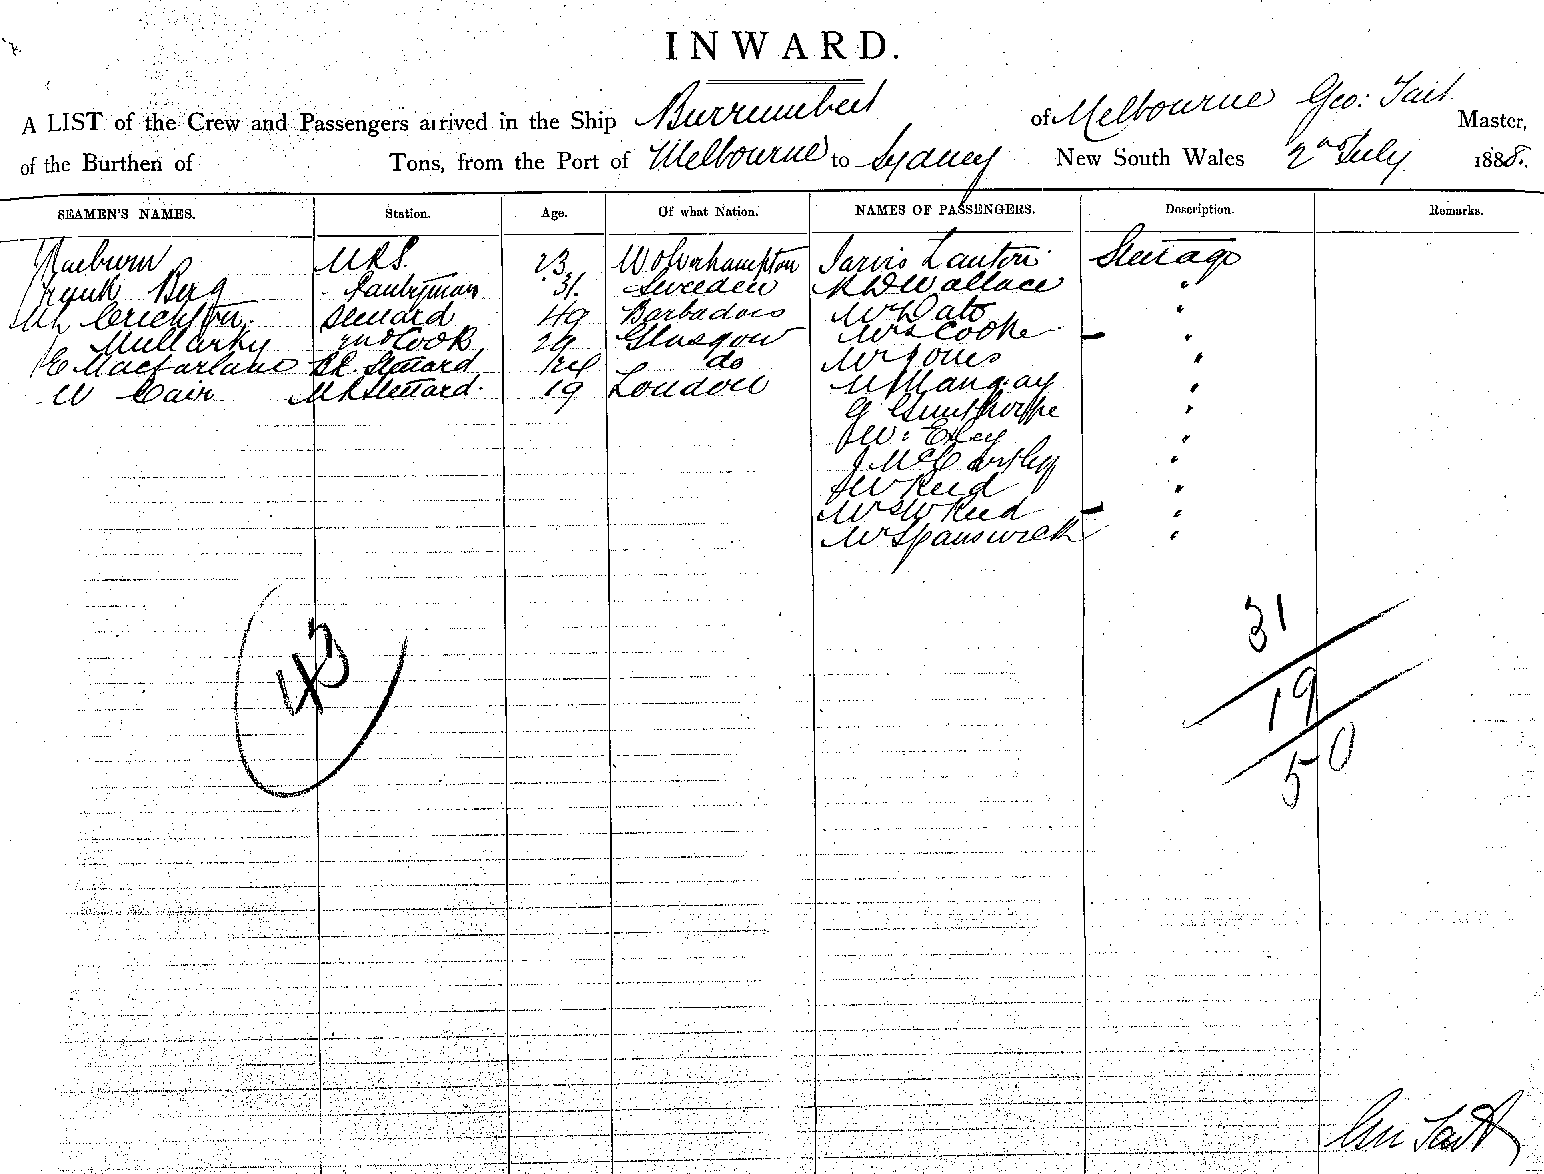 INWARD.
A LIST of the Crew and Passengers arrived in the Ship Burrumbeet of Melbourne Geo: Tait Master,
of the Burthen of Tons, from the Port of Melbourne to Sydney New South Wales 2nd July 1888.
SEAMEN'S NAMES. Station. Age. Of what Nation. NAMES OF PASSENGERS. Description. Remarks.
Raeburn 23 Wolverhampton Jarvis Steerage
Frank Berg Pantryman 31. Sweden Wallace "
Crichton Steward 49 Barbados "
Mullarky 2nd Cook 29 Glasgow Mrs Cooke "
E Macfarlane Steward do Mr Jones "
W Cair Steward. 19 London "
G "
J W: Exley "
J McCarthy "
J W Reid "
Mrs W Reid "
Mr Spanswick "
43
31
19
50
Geo Tait